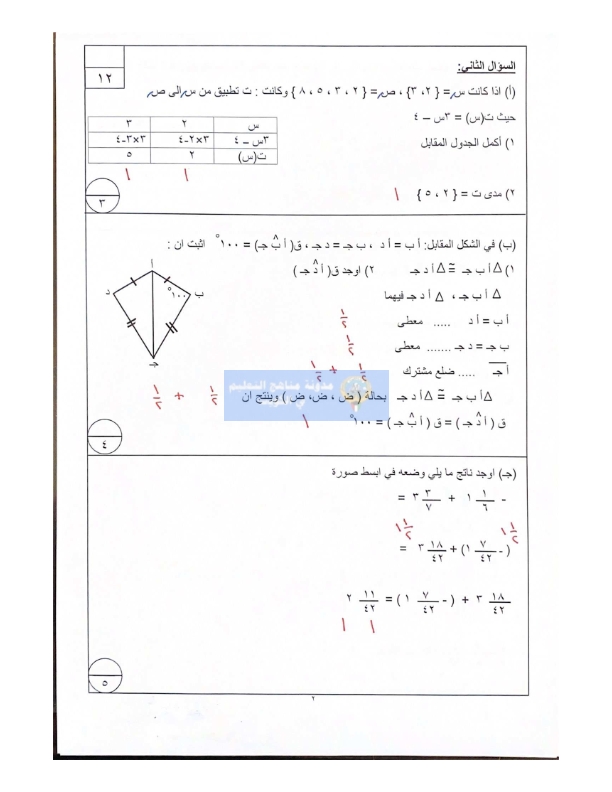 السؤال الثاني:
١٢
(أ) اذا كانت س = { ٢، ٣} ، ص = { ٢ ، ٣ ، ٥ ، ٨ } وكانت : ت تطبيق من س الى ص
حيث ت(س) = ٣س – ٤
١) أكمل الجدول المقابل
س ٢ ٣
٣س – ٤ ٣×٢-٤ ٣×٣-٤
ت(س) ٢ ٥
١ ١
٢) مدى ت = { ٢ ، ٥ } ١
٣
(ب) في الشكل المقابل: أ ب = أ د ، ب جـ = د جـ ، ق( أ ب̂ جـ) = ١٠٠° اثبت ان :
١) △ أ ب جـ ≅ △ أ د جـ ٢) اوجد ق( أ د̂ جـ )
△ أ ب جـ ، △ أ د جـ فيهما
أ ب = أ د ..... معطى ١/٢
ب جـ = د جـ ....... معطى ١/٢
أ جـ ..... ضلع مشترك ١/٢ + ١/٢
△ أ ب جـ ≅ △ أ د جـ بحالة ( ض ، ض، ض ) وينتج ان ١/٢ + ١/٢
ق ( أ د̂ جـ ) = ق ( أ ب̂ جـ ) = ١٠٠° ١
أ
د
ب
١٠٠°
جـ
مدونة مناهج التعليم
٤
(جـ) اوجد ناتج ما يلي وضعه في ابسط صورة
- ١ ١/٦ + ٣ ٣/٧ =
١ ١/٢ ١ ١/٢
(- ١ ٧/٤٢) + ٣ ١٨/٤٢ =
٣ ١٨/٤٢ + (- ١ ٧/٤٢) = ٢ ١١/٤٢
١ ١
٥
٢